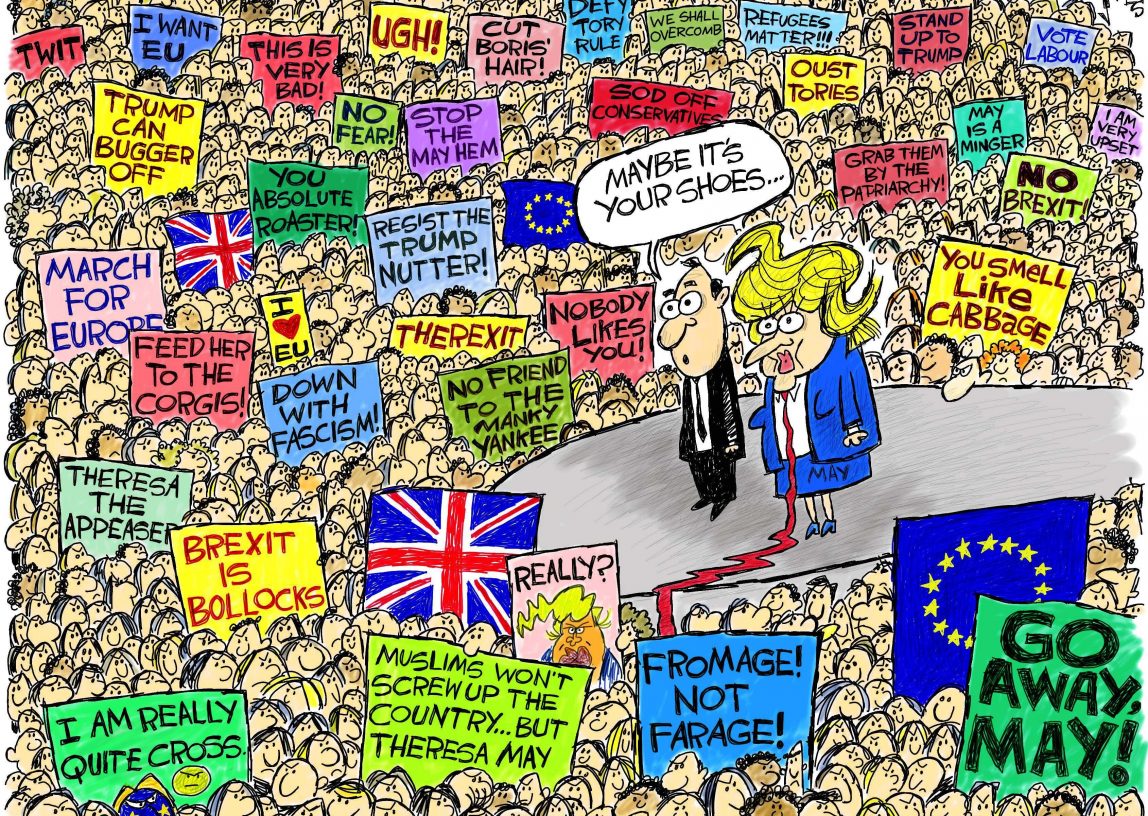 TWIT
I WANT
EU
THIS IS
VERY
BAD!
UGH!
CUT
BORIS'
HAIR!
DEFY
TORY
RULE
WE SHALL
OVERCOMB
REFUGEES
MATTER!!!
STAND
UP TO
TRUMP
VOTE
LABOUR
TRUMP
CAN
BUGGER
OFF
NO
FEAR!
STOP
THE
MAY HEM
SOD OFF
CONSERVATIVES
OUST
TORIES
MAY
IS A
MINGER
I AM
VERY
UPSET
YOU
ABSOLUTE
ROASTER!
MAYBE IT'S
YOUR SHOES...
GRAB THEM
BY THE
PATRIARCHY!
NO
BREXIT!
RESIST THE
TRUMP
NUTTER!
MARCH
FOR
EUROPE
I
EU
THEREXIT
NOBODY
LIKES
YOU!
YOU SMELL
LIKE
CABBAGE
FEED HER
TO THE
CORGIS!
DOWN
WITH
FASCISM!
NO FRIEND
TO THE
MANKY
YANKEE
MAY
THERESA
THE
APPEASER
BREXIT
IS
BOLLOCKS
REALLY?
I AM REALLY
QUITE CROSS.
MUSLIMS WON'T
SCREW UP THE
COUNTRY...BUT
THERESA MAY
FROMAGE!
NOT
FARAGE!
GO
AWAY,
MAY!